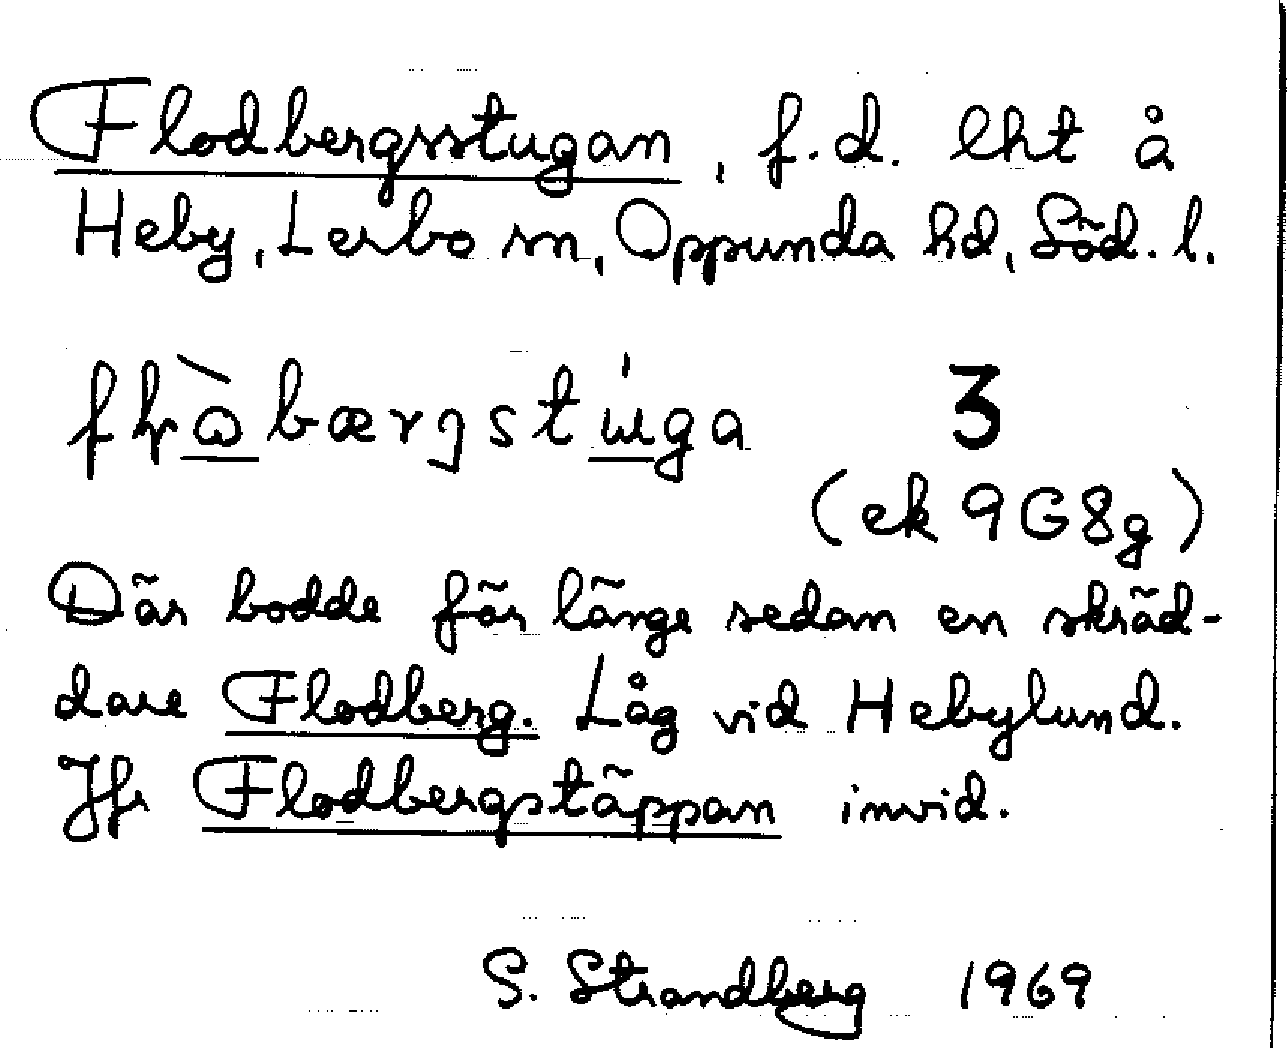 Flodbergsstugan, f.d. lht å
Heby, Lerbo sn, Oppunda hd, Söd. l.
3
(ek 9G8g)
Där bodde för länge sedan en skräd-
dare Flodberg. Låg vid Hebylund.
Jfr Flodbergstäppan invid.
S. Strandberg 1969